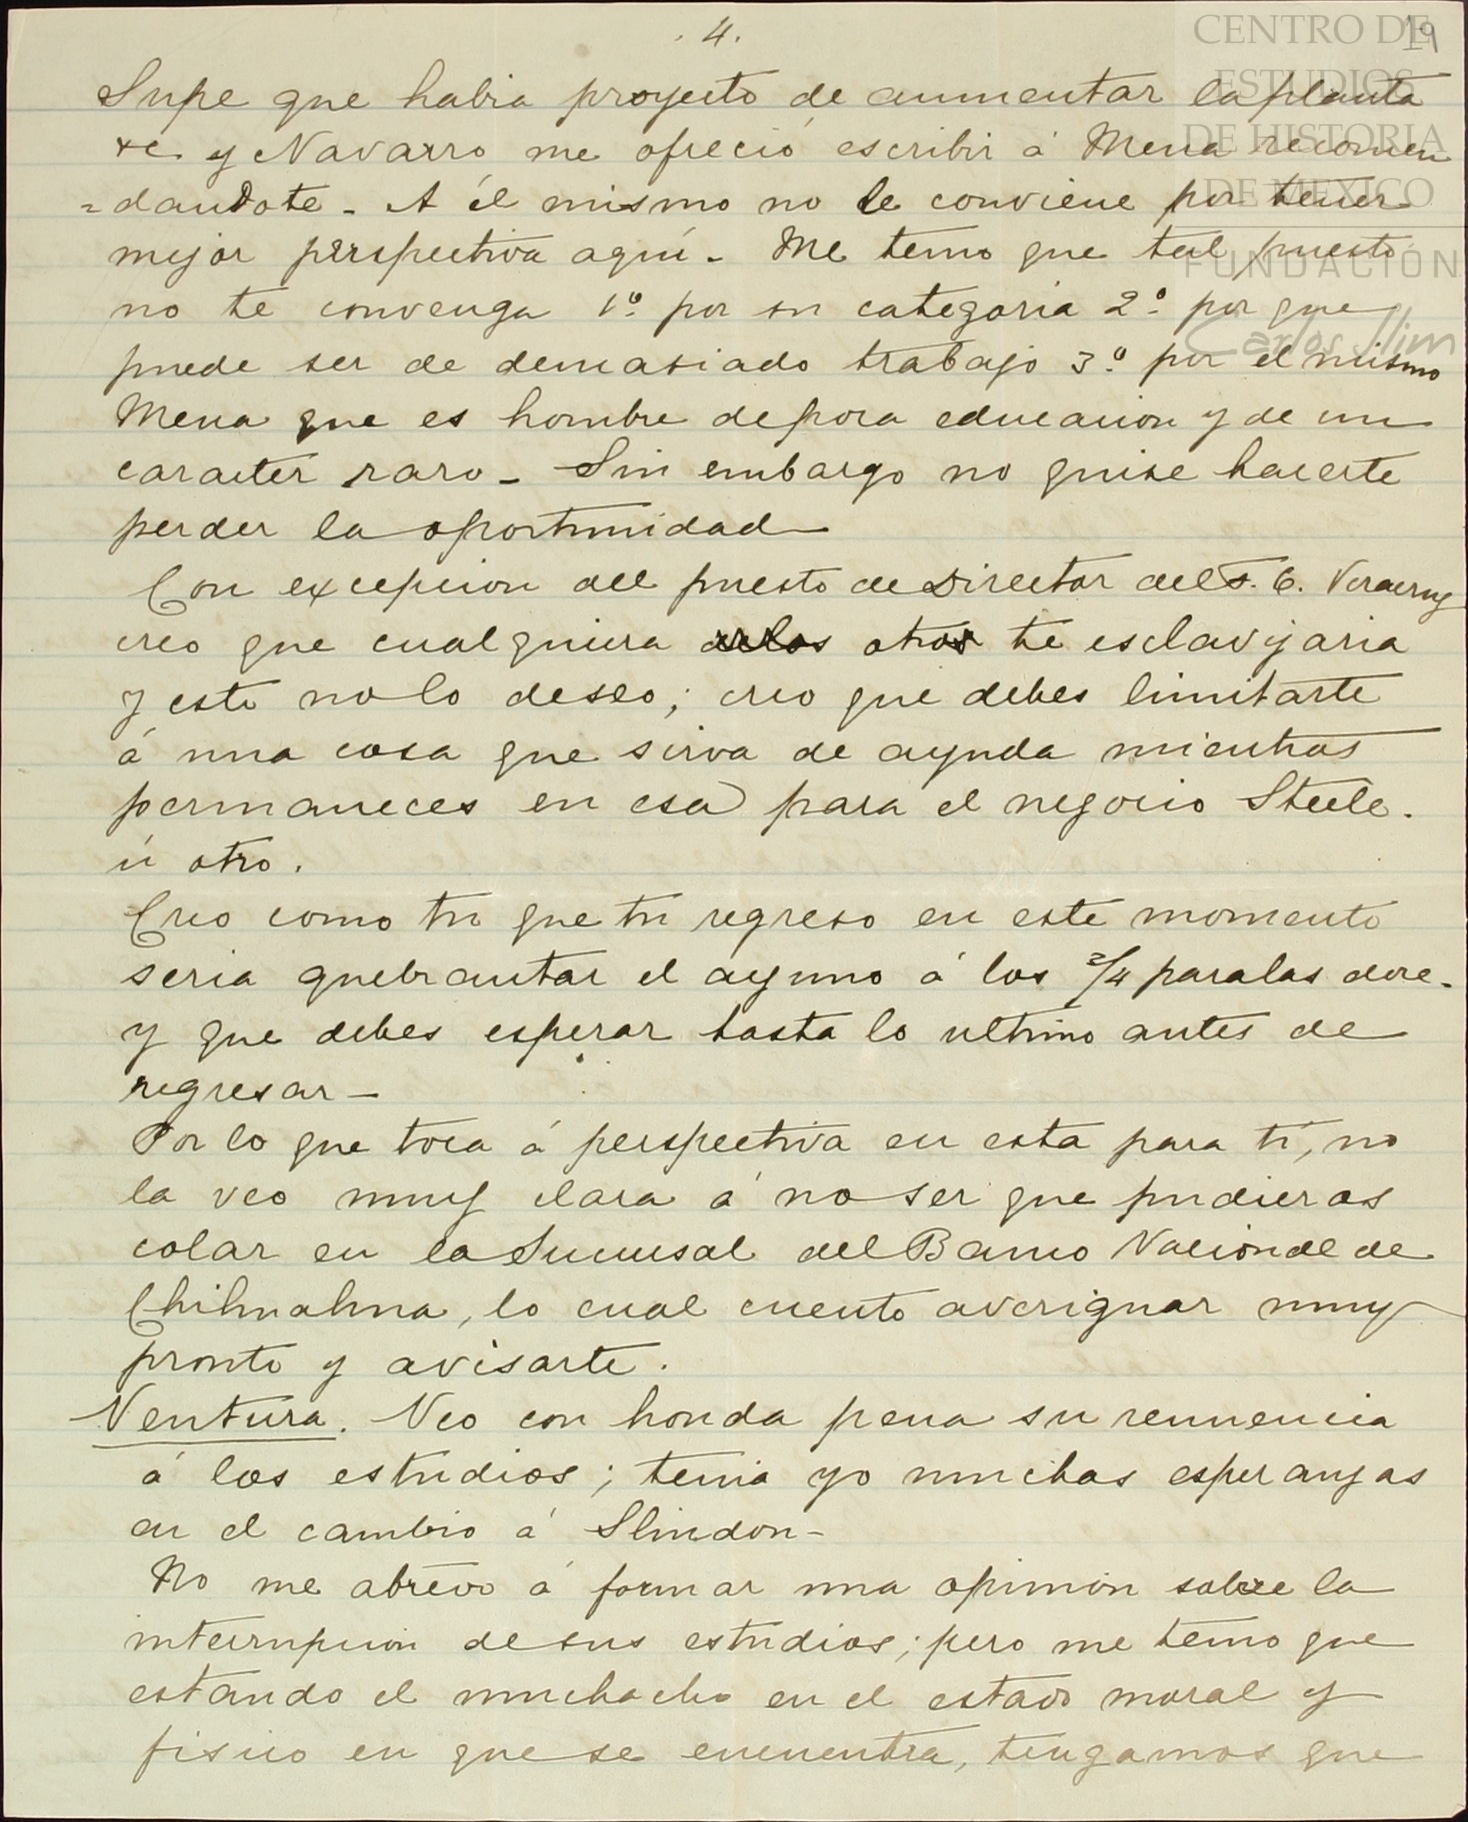 . 4.
19
CENTRO DE
ESTUDIOS
DE HISTORIA
DE MEXICO
FUNDACIÓN
Carlos Slim
Supe que habia proyecto de aumentar la planta
y Navarro me ofreció escribir á Mena recomen
=dandote - A él mismo no le conviene por tener
mejor perspectiva aquí - Me temo que tal puesto
no te convenga 1º por su categoria 2º por que
puede ser de demasiado trabajo 3º por el mismo
Mena que es hombre de poca educacion y de un
caracter raro - Sin embargo no quise hacerte
perder la oportunidad
Con excepcion del puesto de Director del F. C. Veracruz
creo que cualquiera de los otros te esclavizaria
y esto no lo deseo; creo que debes limitarte
á una cosa que sirva de ayuda mientras
permaneces en esa para el negocio Steele.
ú otro.
Creo como tu que tu regreso en este momento
seria quebrantar el ayuno á los 3/4 para las doce.
y que debes esperar hasta lo ultimo antes de
regresar -
Por lo que toca á perspectiva en esta para tí, no
la veo muy clara á no ser que pudieras
colar en la Sucursal del Banco Nacional de
Chihuahua, lo cual cuento averiguar muy
pronto y avisarte.
Ventura. Veo con honda pena su renuencia
á los estudios; tenia yo muchas esperanzas
en el cambio á Slindon -
No me atrevo á formar una opinion sobre la
interrupcion de sus estudios; pero me temo que
estando el muchacho en el estado moral y
fisico en que se encuentra, tengamos que